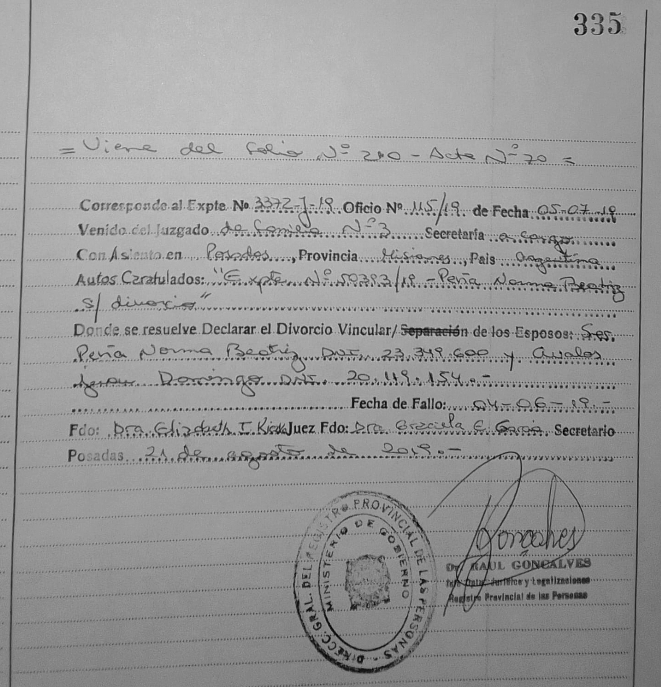 335
= Viene del folio Nº 210 - Acta Nº 70 =
Corresponde al Expte Nº 3372-J-19 Oficio Nº 115/19 de Fecha 05-07-19
Venido del Juzgado de Familia Nº 3 Secretaría a cargo
Con Asiento en Posadas, Provincia Misiones, País Argentina
Autos Caratulados: "Expte. Nº 50393/19 - Peña Norma Beatriz
s/ divorcio"
Donde se resuelve Declarar el Divorcio Vincular/ Separación de los Esposos: Sres.
Peña Norma Beatriz DNI. 23.719.600 y Avalos
Domingo DNI. 20.119.154.-
Fecha de Fallo: 04-06-19.-
Fdo: Dra. Elizabeth I. Juez Fdo: Dra. Graciela E. Secretario
Posadas, 21 de agosto de 2019.-
DIRECC. GRAL. DEL REGISTRO PROVINCIAL DE LAS PERSONAS
MINISTERIO DE GOBIERNO
Gonçalves
Dr. RAUL GONCALVES
Jurídica y Legalizaciones
Registro Provincial de las Personas